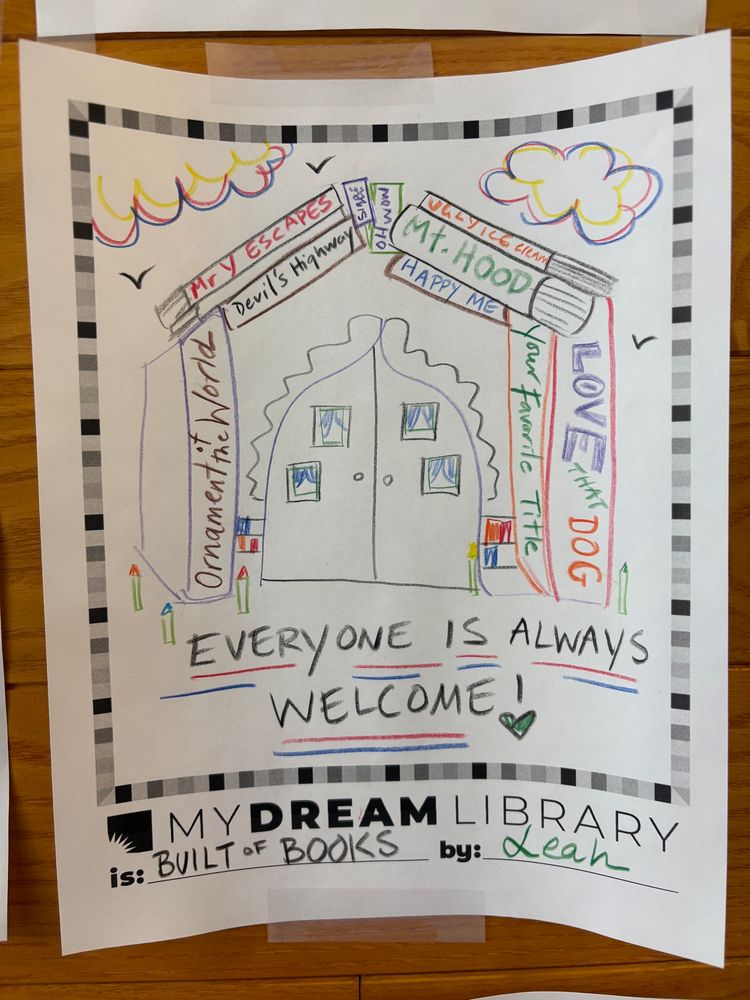 Mr Y ESCAPES
Devil's Highway
MOM HO
UGLY ICE CREAM
Mt. HOOD
HAPPY ME
Ornament it
the World
Your Favorite Title
LOVE
THAT
DOG
EVERYONE IS ALWAYS
WELCOME!
MY DREAM LIBRARY
is: BUILT OF BOOKS by: Leah